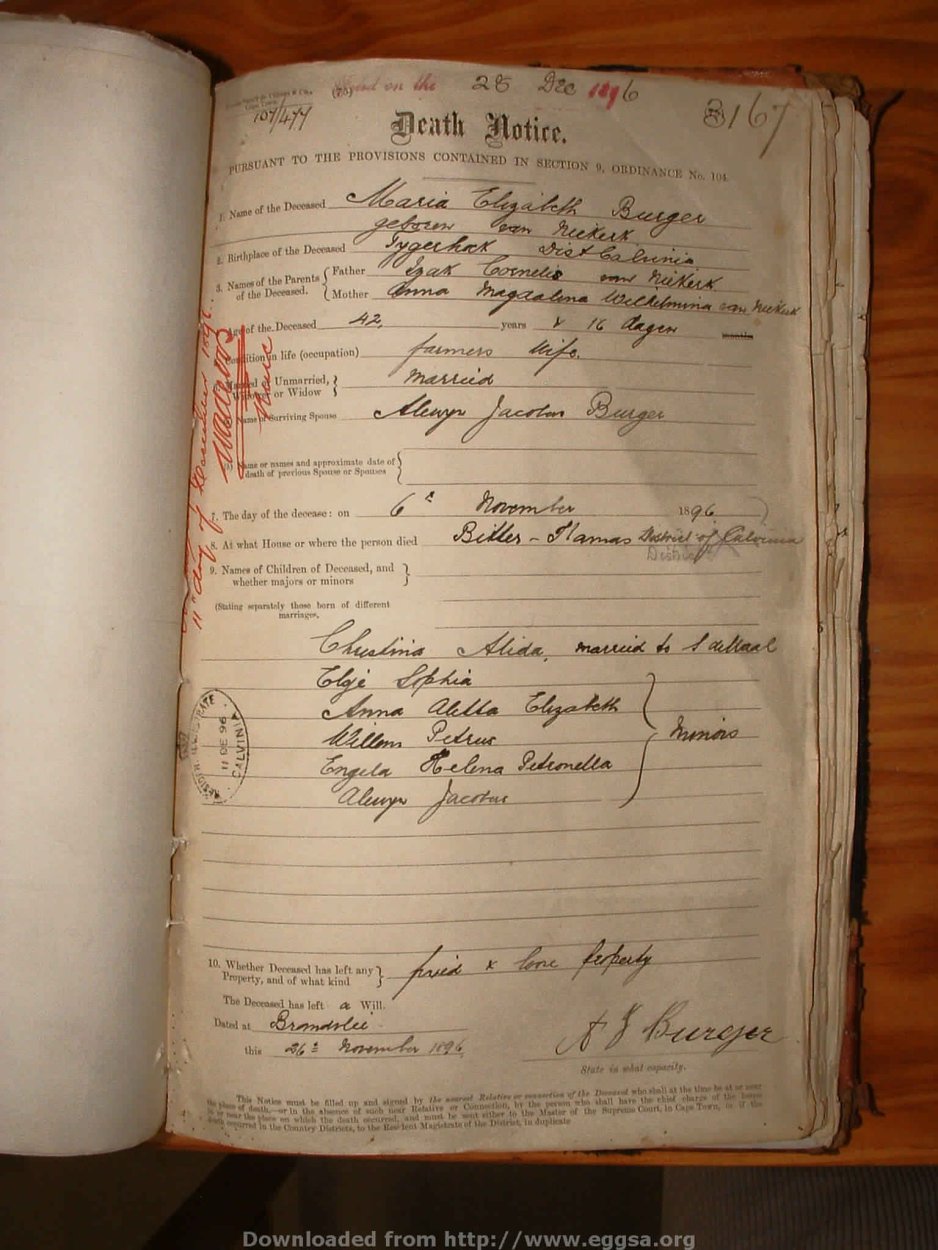 Filed on the 28 Dec 1896
107/477
3167
Death Notice.
PURSUANT TO THE PROVISIONS CONTAINED IN SECTION 9, ORDINANCE No. 104.
1. Name of the Deceased Maria Elizabeth Burger
geboren van Niekerk
2. Birthplace of the Deceased Tygerhoek Dist Calvinia
3. Names of the Parents of the Deceased. Father Izak Cornelis van Niekerk
Mother Anna Magdalena Wilhelmina van Niekerk
Age of the Deceased 42, years & 16 dagen months
Condition in life (occupation) farmers Wife.
Married or Unmarried, Widower or Widow Married
Name of Surviving Spouse Alewyn Jacobus Burger
Name or names and approximate date of
death of previous Spouse or Spouses
7. The day of the decease: on 6e November 1896
8. At what House or where the person died Bitter-Flamas District of Calvinia
District
9. Names of Children of Deceased, and
whether majors or minors
(Stating separately those born of different
marriages.
Christina Alida, married to S de Waal
Elsje Sophia
Anna Aletta Elizabeth
Willem Petrus Minors
Engela Helena Petronella
Alewyn Jacobus
11th day of December 1896.
RESIDENT MAGISTRATE
11 DE 96
CALVINIA
10. Whether Deceased has left any
Property, and of what kind fixed & loose property
The Deceased has left a Will.
Dated at Brandvlei
this 26e November 1896
A J Burger
State in what capacity.
This Notice must be filled up and signed by the nearest Relative or connection of the Deceased who shall at the time be at or near
the place of death,—or in the absence of such near Relative or Connection, by the person who shall have the chief charge of the house
in or near the place on which the death occurred, and must be sent either to the Master of the Supreme Court, in Cape Town, or if the
death occurred in the Country Districts, to the Resident Magistrate of the District, in duplicate
Downloaded from http://www.eggsa.org